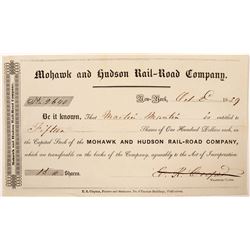 Mohawk and Hudson Rail-Road Company.
No. 2640 New-York, Oct. 2 18
Be it known, That Martin is entitled to
Fifteen Shares of One Hundred Dollars each, in
the Capital Stock of the MOHAWK AND HUDSON RAIL-ROAD COMPANY,
which are transferable on the books of the Company, agreeably to the Act of Incorporation.
15 Shares.